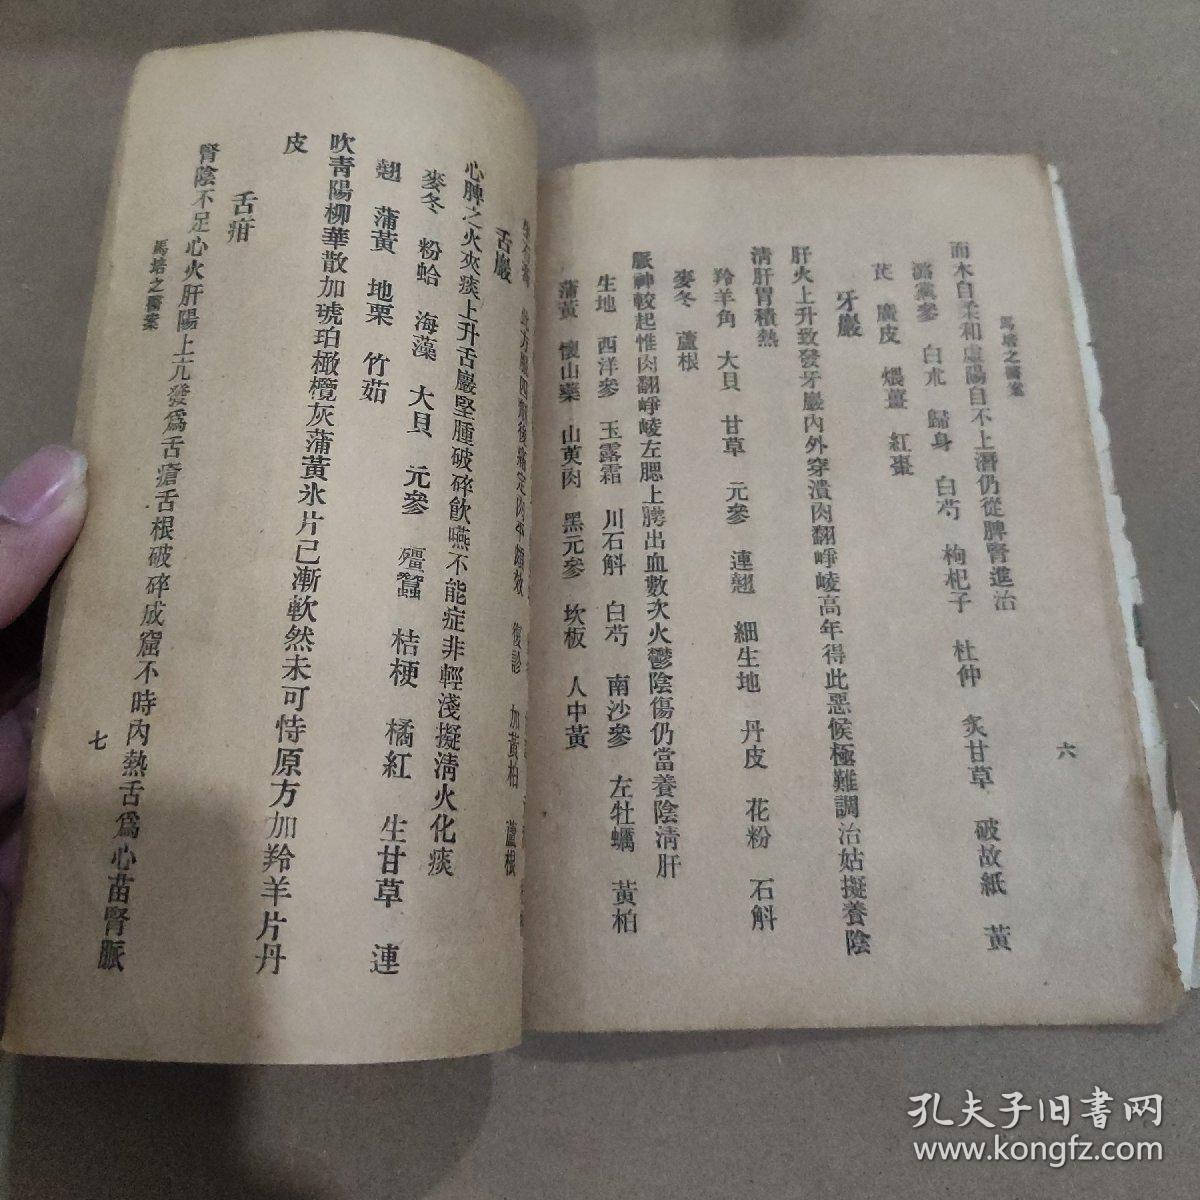 馬培之醫案
六
而木自柔和虛陽自不上潛仍從脾腎進治
潞黨參 白朮 歸身 白芍 枸杞子 杜仲 炙甘草 破故紙 黃
芪 廣皮 煨薑 紅棗
牙巖
肝火上升致發牙巖內外穿潰肉翻崢崚高年得此惡候極難調治姑擬養陰
清肝胃積熱
羚羊角 大貝 甘草 元參 連翹 細生地 丹皮 花粉 石斛
麥冬 蘆根
脈神較起惟肉翻崢崚左腮上腭出血數次火鬱陰傷仍當養陰清肝
生地 西洋參 玉露霜 川石斛 白芍 南沙參 左牡蠣 黃柏
蒲黃 懷山藥 山萸肉 黑元參 坎板 人中黃
復診 加黃柏 蘆根
舌巖
心脾之火夾痰上升舌巖堅腫破碎飲嚥不能症非輕淺擬清火化痰
麥冬 粉蛤 海藻 大貝 元參 殭蠶 桔梗 橘紅 生甘草 連
翹 蒲黃 地栗 竹茹
吹青陽柳華散加琥珀橄欖灰蒲黃氷片已漸軟然未可恃原方加羚羊片丹
皮
舌疳
腎陰不足心火肝陽上亢發爲舌瘡舌根破碎成窟不時內熱舌爲心苗腎脈
馬培之醫案
七
孔夫子旧书网
www.kongfz.com